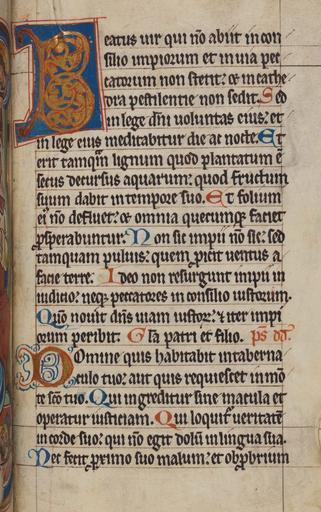 Beatus uir qui nõ abiit in con
silio impiorum et in uia pec
catorum non stetit: ⁊ in cathe
dra pestilentie non sedit. Sed
in lege dñi uoluntas eius: et
in lege eius meditabitur die ac nocte. Et
erit tamquã lignum quod plantatum ẽ
secus decursus aquarum: quod fructum
suum dabit in tempore suo. Et folium
eiꝰ nõ defluet: ⁊ omnia quecumqꝫ faciet
ꝓsperabuntur. Non sic impii nõ sic: sed
tamquam puluis: quem ꝓicit uentus a
facie terre. Ideo non resurgunt impii in
iudicio: neqꝫ peccatores in consilio iustorum.
Qm̃ nouit dñs uiam iustoꝝ: ⁊ iter impi
orum peribit. Gl̃a patri et filio. pẜ dd̃.
Domine quis habitabit in taberna
culo tuo: aut quis requiescet in mõ
te scõ tuo. Qui ingreditur sine macula et
operatur iusticiam. Qui loquitᷣ ueritatẽ
in corde suo: qui nõ egit dolũ in lingua sua.
Nec fecit ꝓximo suo malum: et obꝓbrium